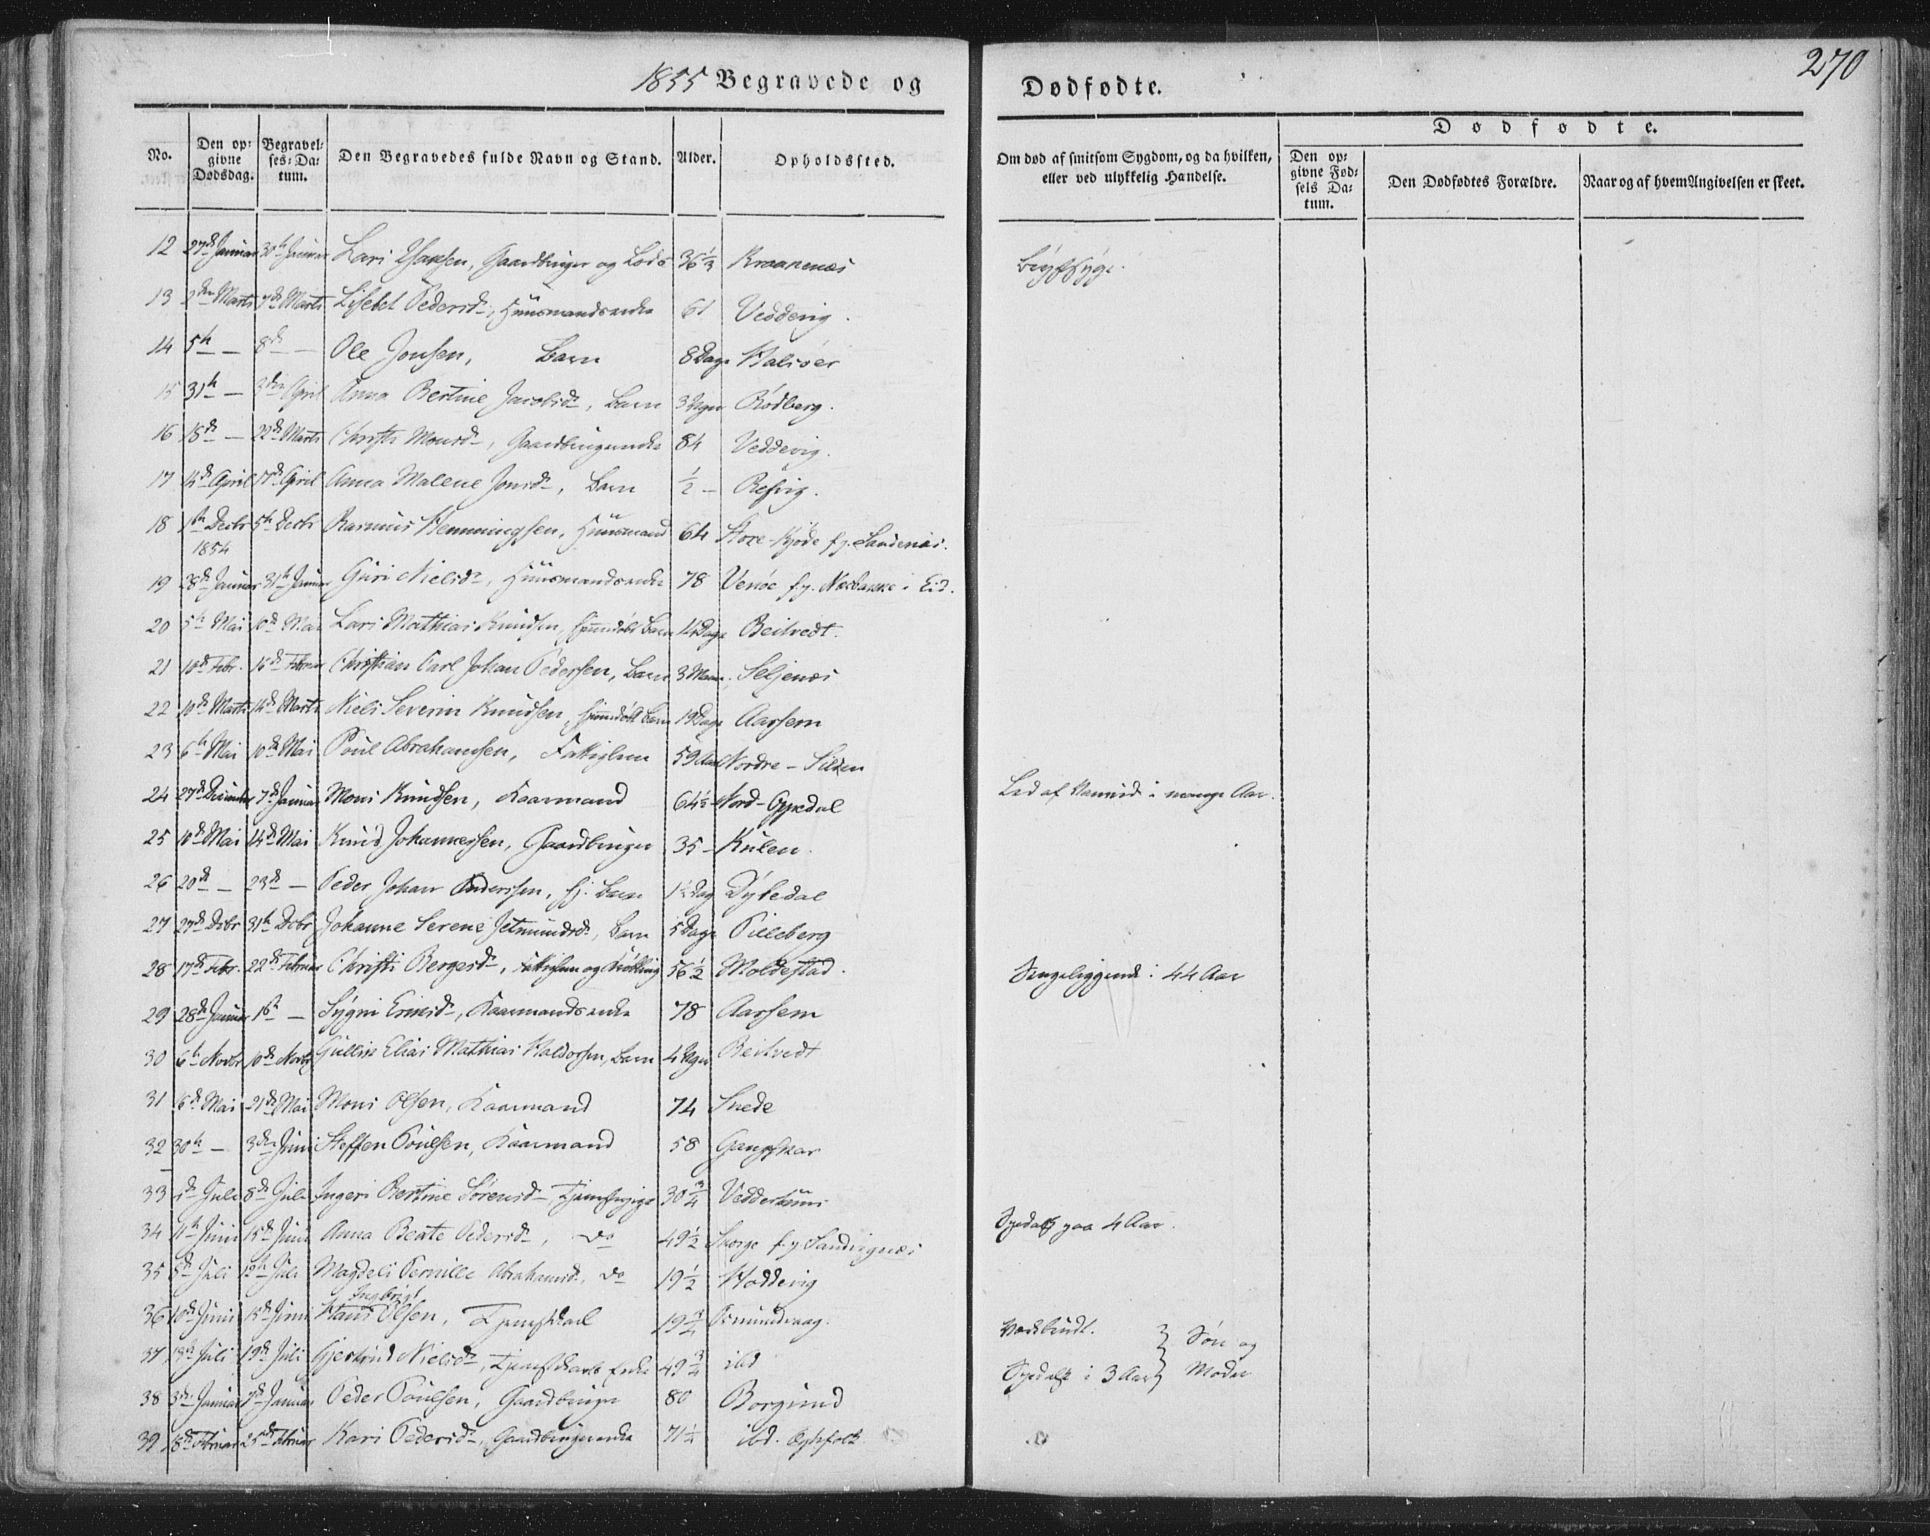 270
1855 Begravede og Dødfødte.
No. Den opgivne Dødsdag. Begravelses-Datum. Den Begravedes fulde Navn og Stand. Alder. Opholdssted. Om død af smitsom Sygdom, og da hvilken, eller ved ulykkelig Handelse. Dødfødte. Den opgivne Fødsels Datum. Den Dødfødtes Forældre. Naar og af hvem Angivelsen er skeet.
12 27de Januar 30te Januar Lars Isaksen, Gaardbruger og Lods 36 1/3 Kraakenæs
13 2den Marts 7de Marts Lisebet Pedersd., Huusmandsenke 61 Veddevig.
14 5te — 8de — Ole Jonsen, Barn 8 Dage Halsøer
15 31te — 3die April Anna Bertine Jacobsd., Barn 3 Uger Rødberg.
16 18de — 22de Marts Christi Monsd., Gaardbrugerenke 84 Veddevig.
17 14de April 17de April Anna Malene Jonsd., Barn 1/2 — Refvig.
18 1ste Decbr 1854 5te Decbr Rasmus Hemmingsen, Huusmand 64 Store-Kjøde f. p. Sandenæs.
19 28de Januar 31te Januar Guri Nielsd., Huusmandsenke 78 Venøe f. p. Nosbakke i Eid.
20 5te Mai 10de Mai Lars Mathias Knudsen, hjemdøbt Barn 14 Dage Beitvedt.
21 10de Febr. 16de Februar Christian Carl Johan Pedersen, Barn 3 Maan. Seljenæs
22 10de Marts 14de Marts Niels Severin Knudsen, hjemdøbt Barn 19 Dage Aarsem
23 6te Mai 10de Mai Poul Abrahamsen, Fattiglem 59 Aar Nordre-Silden
24 27de December 7de Januar Mons Knudsen, Kaarmand 64 1/2 Nord-Oppedal Led af i mange Aar.
25 10de Mai 14de Mai Knud Johannessen, Gaardbruger 35 — Kulen.
26 20de — 23de — Peder Johan Andersen, hj. Barn 1 1/2 Dag Dybedal
27 27de Dcbr 31te Dcbr Johanne Serene Jetmundsd., Barn 5 Dage Pilleberg
28 17de Febr. 22de Februar Christi Bergesd., Fattiglem og Krøbling 56 1/2 Moldestad. Sengeliggende i 44 Aar
29 28de Januar 1ste — Sygni Eriksd., Kaarmandsenke 78 Aarsem
30 6te Novbr 10de Novbr Gullik Elias Mathias Haldorsen, Barn 4 Uger Beitvedt
31 6te Mai 21de Mai Mons Olsen, Kaarmand 74 Snede
32 30te — 3die Juni Steffen Poulsen, Kaarmand 58 Gangskar
33 Juli 8de Juli Ingeri Bertine Sørensd. Tjenestepige 30 3/4 Vedderhuus
34 11te Juni 15de Juni Anna Beate Pedersd., do 49 1/2 Skorge f. p. Sandvignæs Spedalsk paa 4 Aar.
35 Juli Juli Magdeli Pernille Abrahamsd. do 19 1/2 Hoddevig
36 10de Juni 15de Juni Hans Ingebrigt Olsen, Tjenestkarl 19 3/4 Osmundvaag.
37 Juli 19de Juli Gjertrud Nielsd., Tjenestkarls Enke 49 3/4 ibd Spedalsk i 3 Aar } Søn og Moder
38 3die Januar 7de Januar Peder Poulsen, Gaardbruger 80 Borgund
39 18de Februar 25de Februar Kari Pedersd., Gaardbrugerenke 71 1/2 ibd. Egtefolk